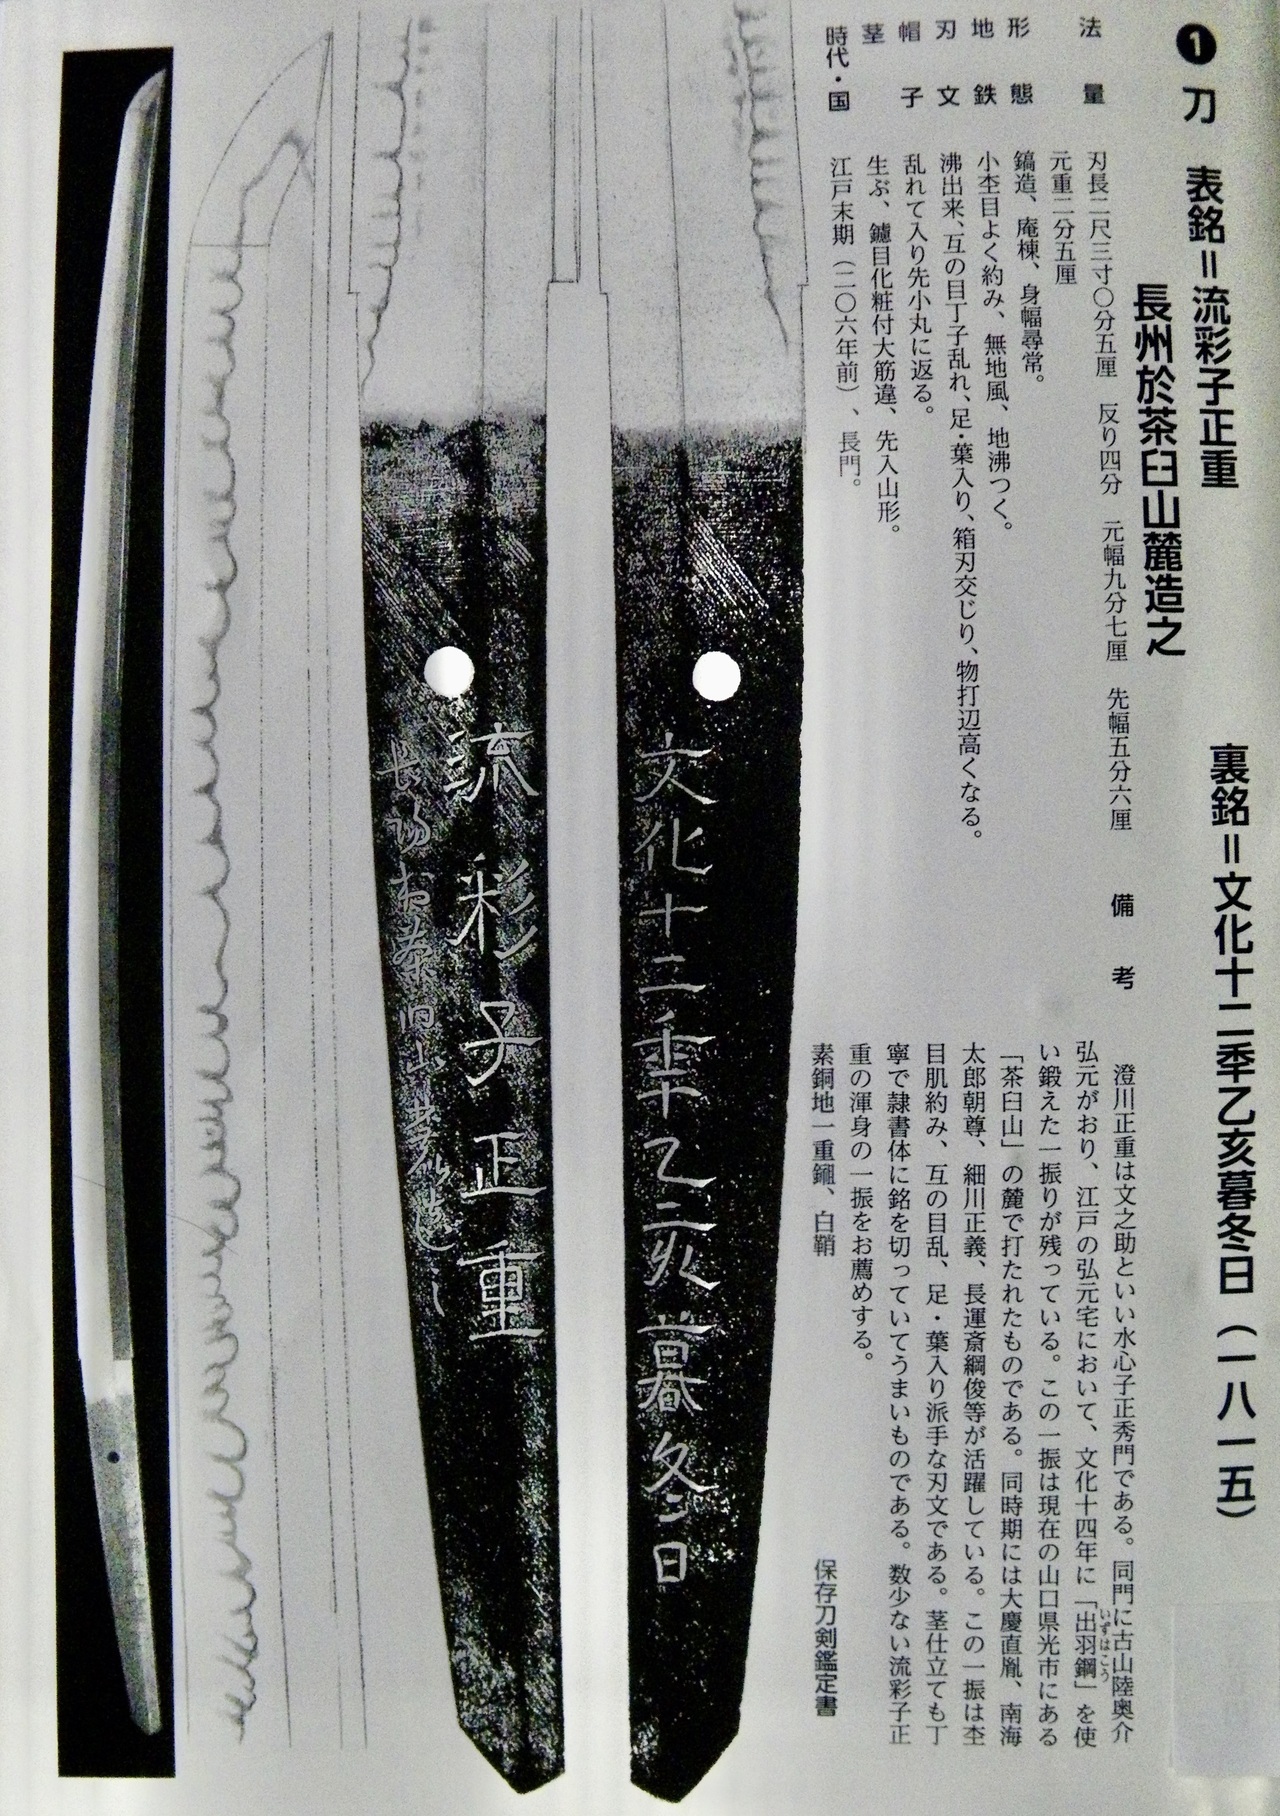 ❶ 刀 表銘=流彩子正重 裏銘=文化十二季乙亥暮冬日(一八一五)
長州於茶臼山麓造之
法量 刃長二尺三寸〇分五厘 反り四分 元幅九分七厘 先幅五分六厘
元重二分五厘
形態 鎬造、庵棟、身幅尋常。
地鉄 小杢目よく約み、無地風、地沸つく。
刃文 沸出来、互の目丁子乱れ、足・葉入り、箱刃交じり、物打辺高くなる。
帽子 乱れて入り先小丸に返る。
茎 生ぶ、鑢目化粧付大筋違、先入山形。
時代・国 江戸末期(二〇六年前)、長門。
備考 澄川正重は文之助といい水心子正秀門である。同門に古山陸奥介
弘元がおり、江戸の弘元宅において、文化十四年に「出羽鋼」を使
いずはこう
い鍛えた一振りが残っている。この一振は現在の山口県光市にある
「茶臼山」の麓で打たれたものである。同時期には大慶直胤、南海
太郎朝尊、細川正義、長運斎綱俊等が活躍している。この一振は杢
目肌約み、互の目乱、足・葉入り派手な刃文である。茎仕立ても丁
寧で隷書体に銘を切っていてうまいものである。数少ない流彩子正
重の渾身の一振をお薦めする。
素銅地一重鎺、白鞘 保存刀剣鑑定書
文化十二季乙亥暮冬日
流彩子正重